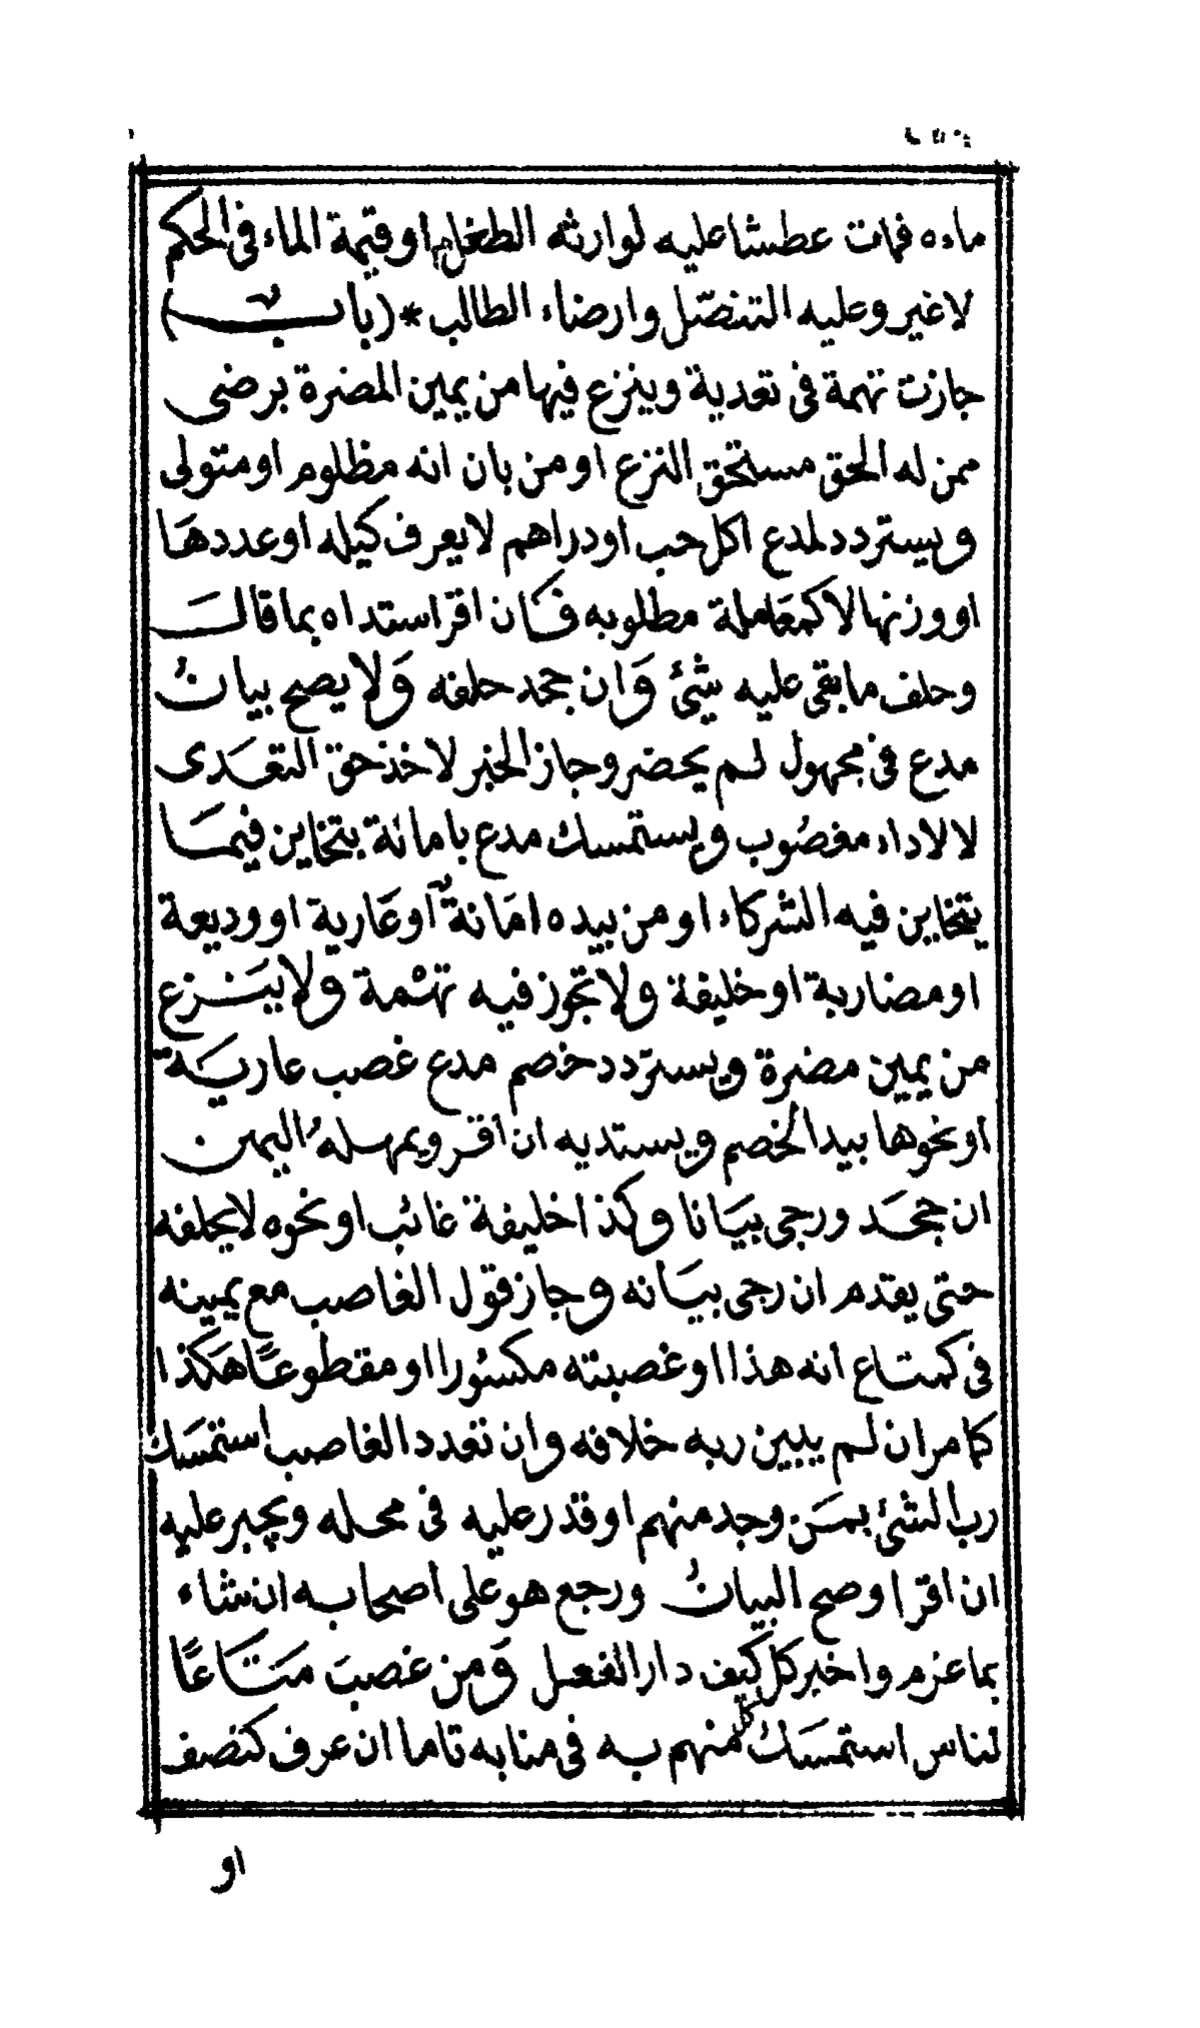 ماءه فمات عطشا عليه لوارثه الطعام او قيمة الماء فى الحكم
لا غير وعليه التنصّل وارضاء الطالب * (باب)
جازت تهمة فى تعدية وينزع فيها من يمين المضرة برضى
ممن له الحق مستحق النزع او من بان انه مظلوم او متولى
ويستردد لمدع اكل حب او دراهم لا يعرف كيله او عددها
او وزنها لا كمعاملة مطلوبه فكان اقر استداه بما قال
وحلف ما بقى عليه شئ وَان جحد حلفه وَلا يصح بيانُ
مدع فى مجهول لم يحضر وجاز الخبر لاخذ حق التعَدى
لا لاداء مغصُوب ويستمسك مدع بامانة بتخاين فيمَا
يتخاين فيه الشركاء او من بيده امَانة او عَارية او وديعة
او مضاربة او خليفة ولا تجوز فيه تهْمة ولا ينَزع
من يمين مضرة ويستردد خصم مدع غصب عاريَة
او نحوها بيد الخصم ويستديه ان اقر ويمهلهُ اليمن
ان جحَد ورجى بيَانا وكذا خليفة غائب او نحوه لا يحلفه
حتى يقدم ان رجى بيَانه وجاز قول الغاصب مع يمينه
فى كمتاع انه هذا او غصبته مكسُورا او مقطوعًا هَكذا
كامر ان لم يبين ربه خلافه وان تعدد الغاصب استمسَك
رب الشئ بمَن وجد منهم او قدر عليه فى محله ويجبر عليه
ان اقرا وصح البيانُ ورجع هو على اصحابه ان شاء
بما عزم واخبر كل كيف دار الفعل وَمن غصبَ متَاعًا
لناس استمسَك كل منهم به فى منابه تاما ان عرف كنصف
او